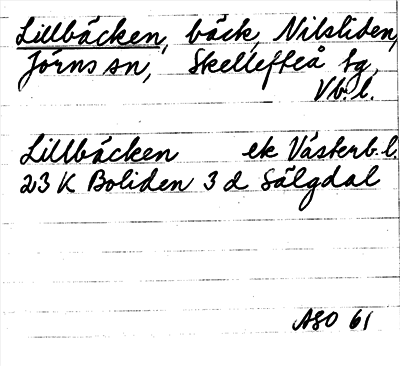 Lillbäcken, bäck, Nilsliden,
Jörns sn, Skellefteå tg,
Vb. l.
Lillbäcken ek Västerb. l.
23 K Boliden 3 d Sälgdal
ASO 61